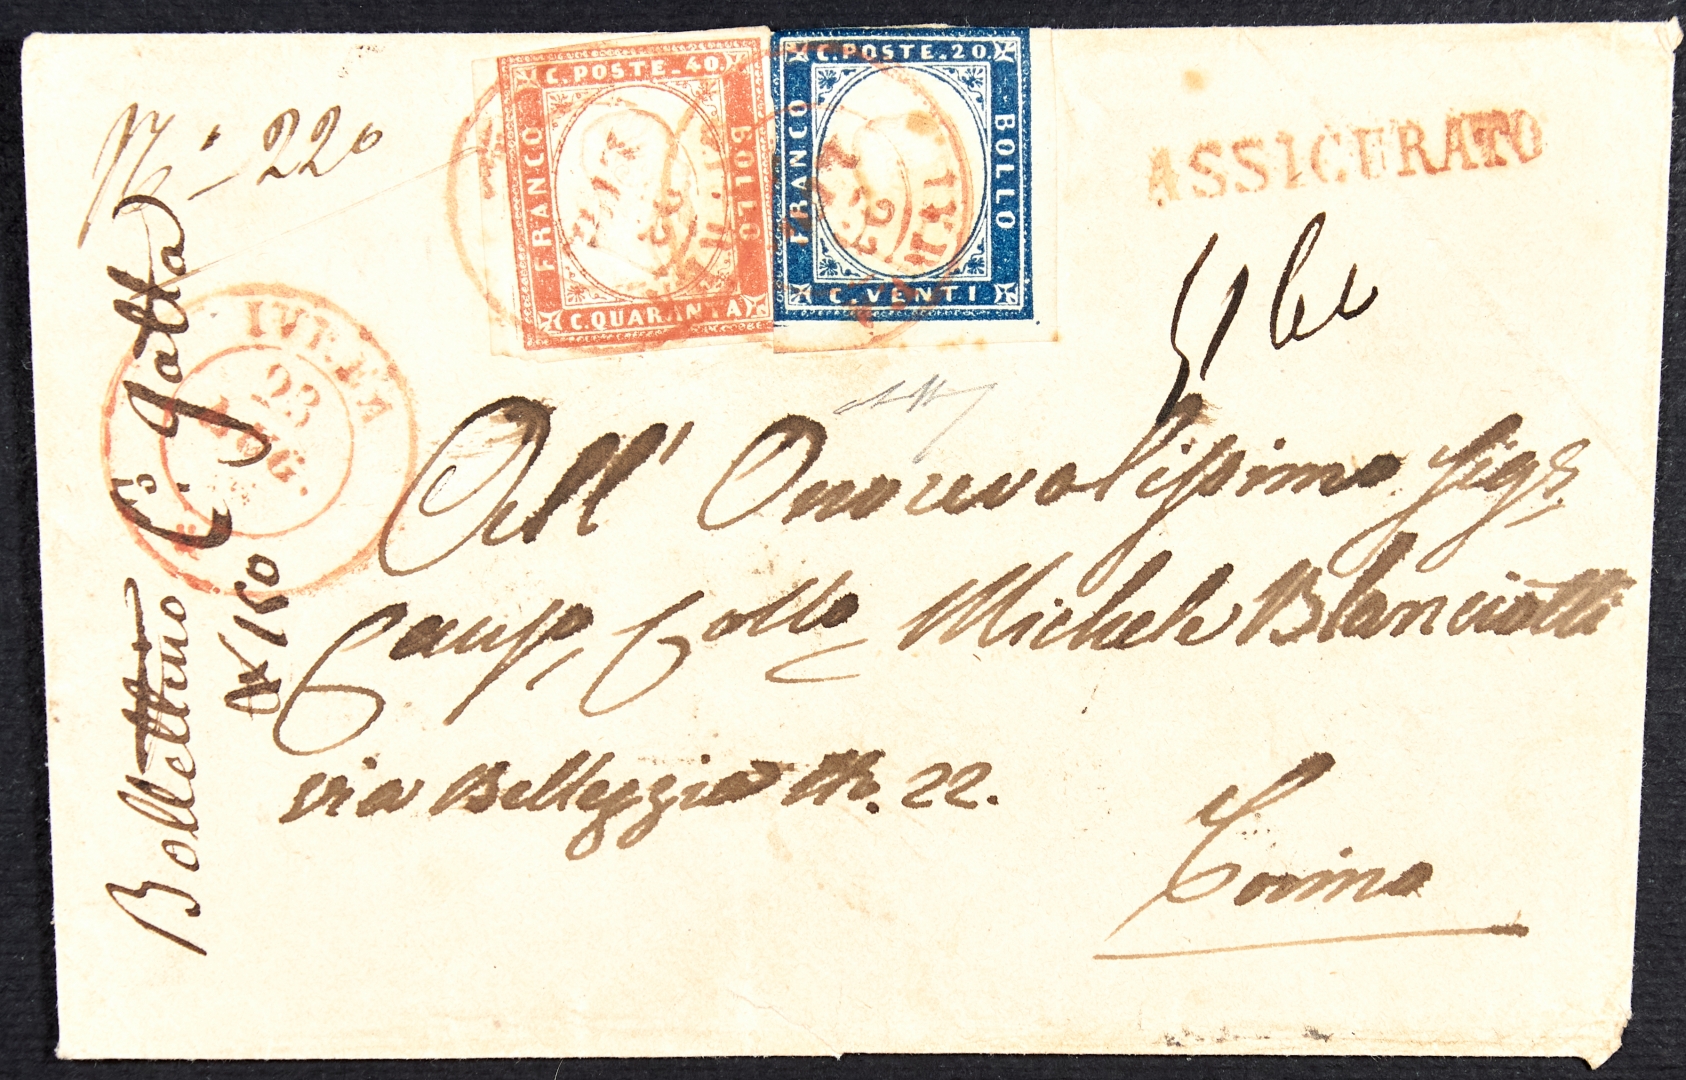 N.° 220
C. POSTE. 40.
FRANCO
BOLLO
C. QUARANTA
C. POSTE. 20.
FRANCO
BOLLO
C. VENTI
ASSICURATO
IVREA
23
AUG.
Bollettino
N 150
Dell' Onorevolissimo Sigr
Causo Collo Michele Blanciotti
via Bellezzia N. 22.
Torino